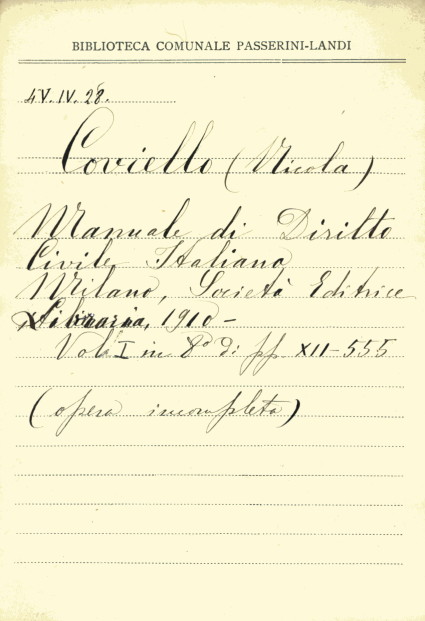 BIBLIOTECA COMUNALE PASSERINI-LANDI
4V.IV.28.
Coviello (Nicola)
Manuale di Diritto
Civile Italiano
Milano, Società Editrice
Libraria, 1910 -
Vol. I in 8° di pp. XII-555
(opera incompleta)